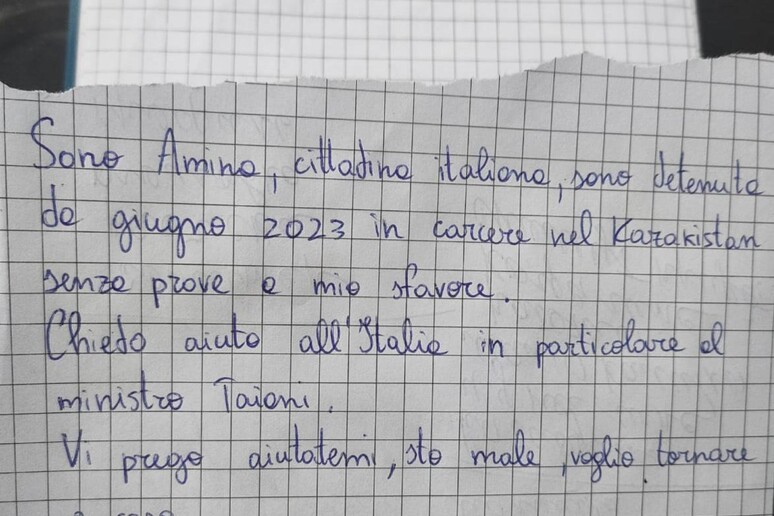 Sono Amina, cittadina italiana, sono detenuta
da giugno 2023 in carcere nel Kazakistan
senza prove a mio sfavore.
Chiedo aiuto all'Italia in particolare al
ministro Taiani.
Vi prego aiutatemi, sto male, voglio tornare
a casa